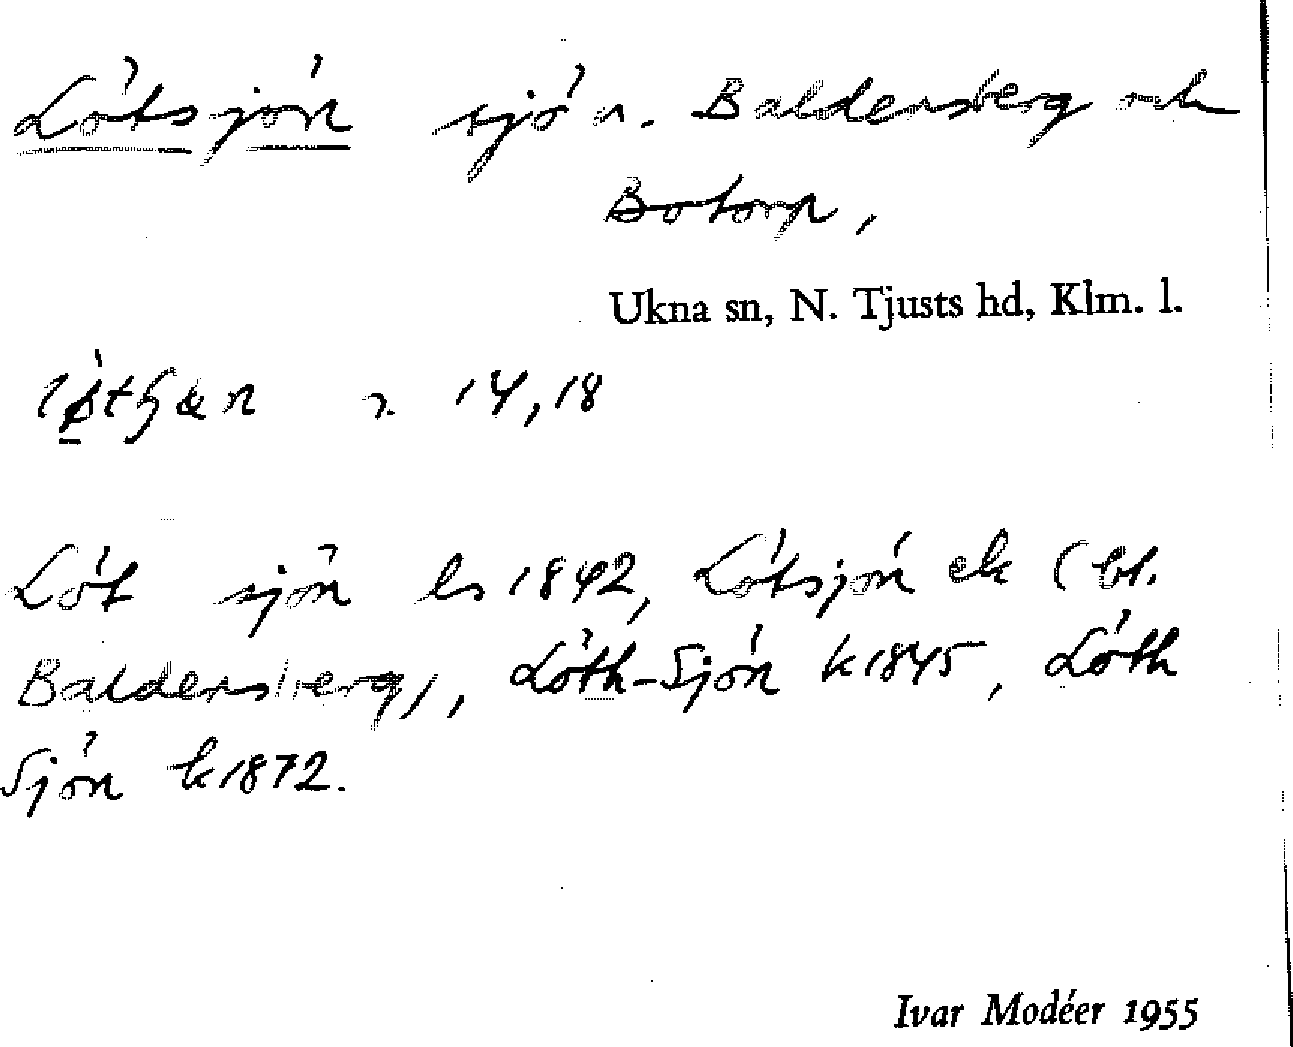 Lötsjön sjö n. Baldersberg och
Botorp,
Ukna sn, N. Tjusts hd, Klm. l.
14,18
Löt sjön ls 1842, Lötsjön ek (bl.
Baldersberg), Löth-Sjön k 1845, Löth
Sjön k 1872.
Ivar Modéer 1955